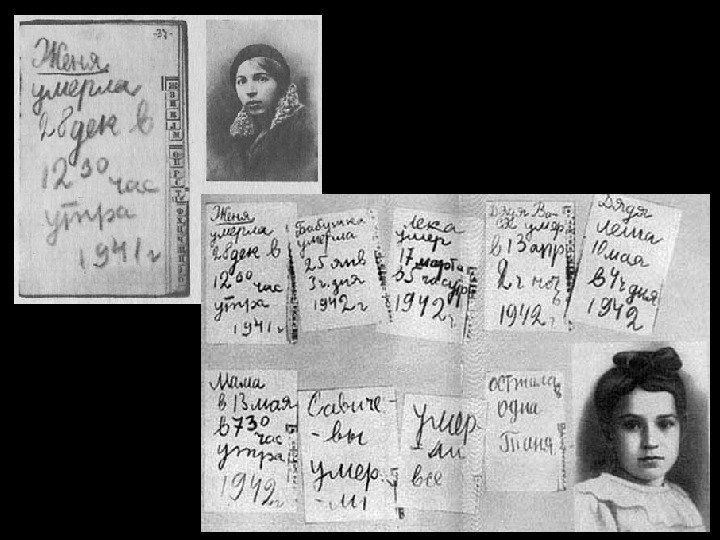 -37-
Женя
умерла
28 дек в
12 30 час
утра
1941 г
Женя
умерла
28 дек в
12 00 час
утра
1941 г
Бабушка
умерла
25 янв
3 ч. дня
1942 г
Лека
умер
17 марта
в 5 час утр
1942 г.
Дядя Ва
ся умер
в 13 апр
2 ч ноч
в
1942 г
Дядя
Леша
10 мая
в 4 ч дня
1942
Мама
в 13 мая
в 7 30
час
утра
1942 г
Савиче-
-вы
умер.
-ли
умер-
-ли
все
одна
Таня.